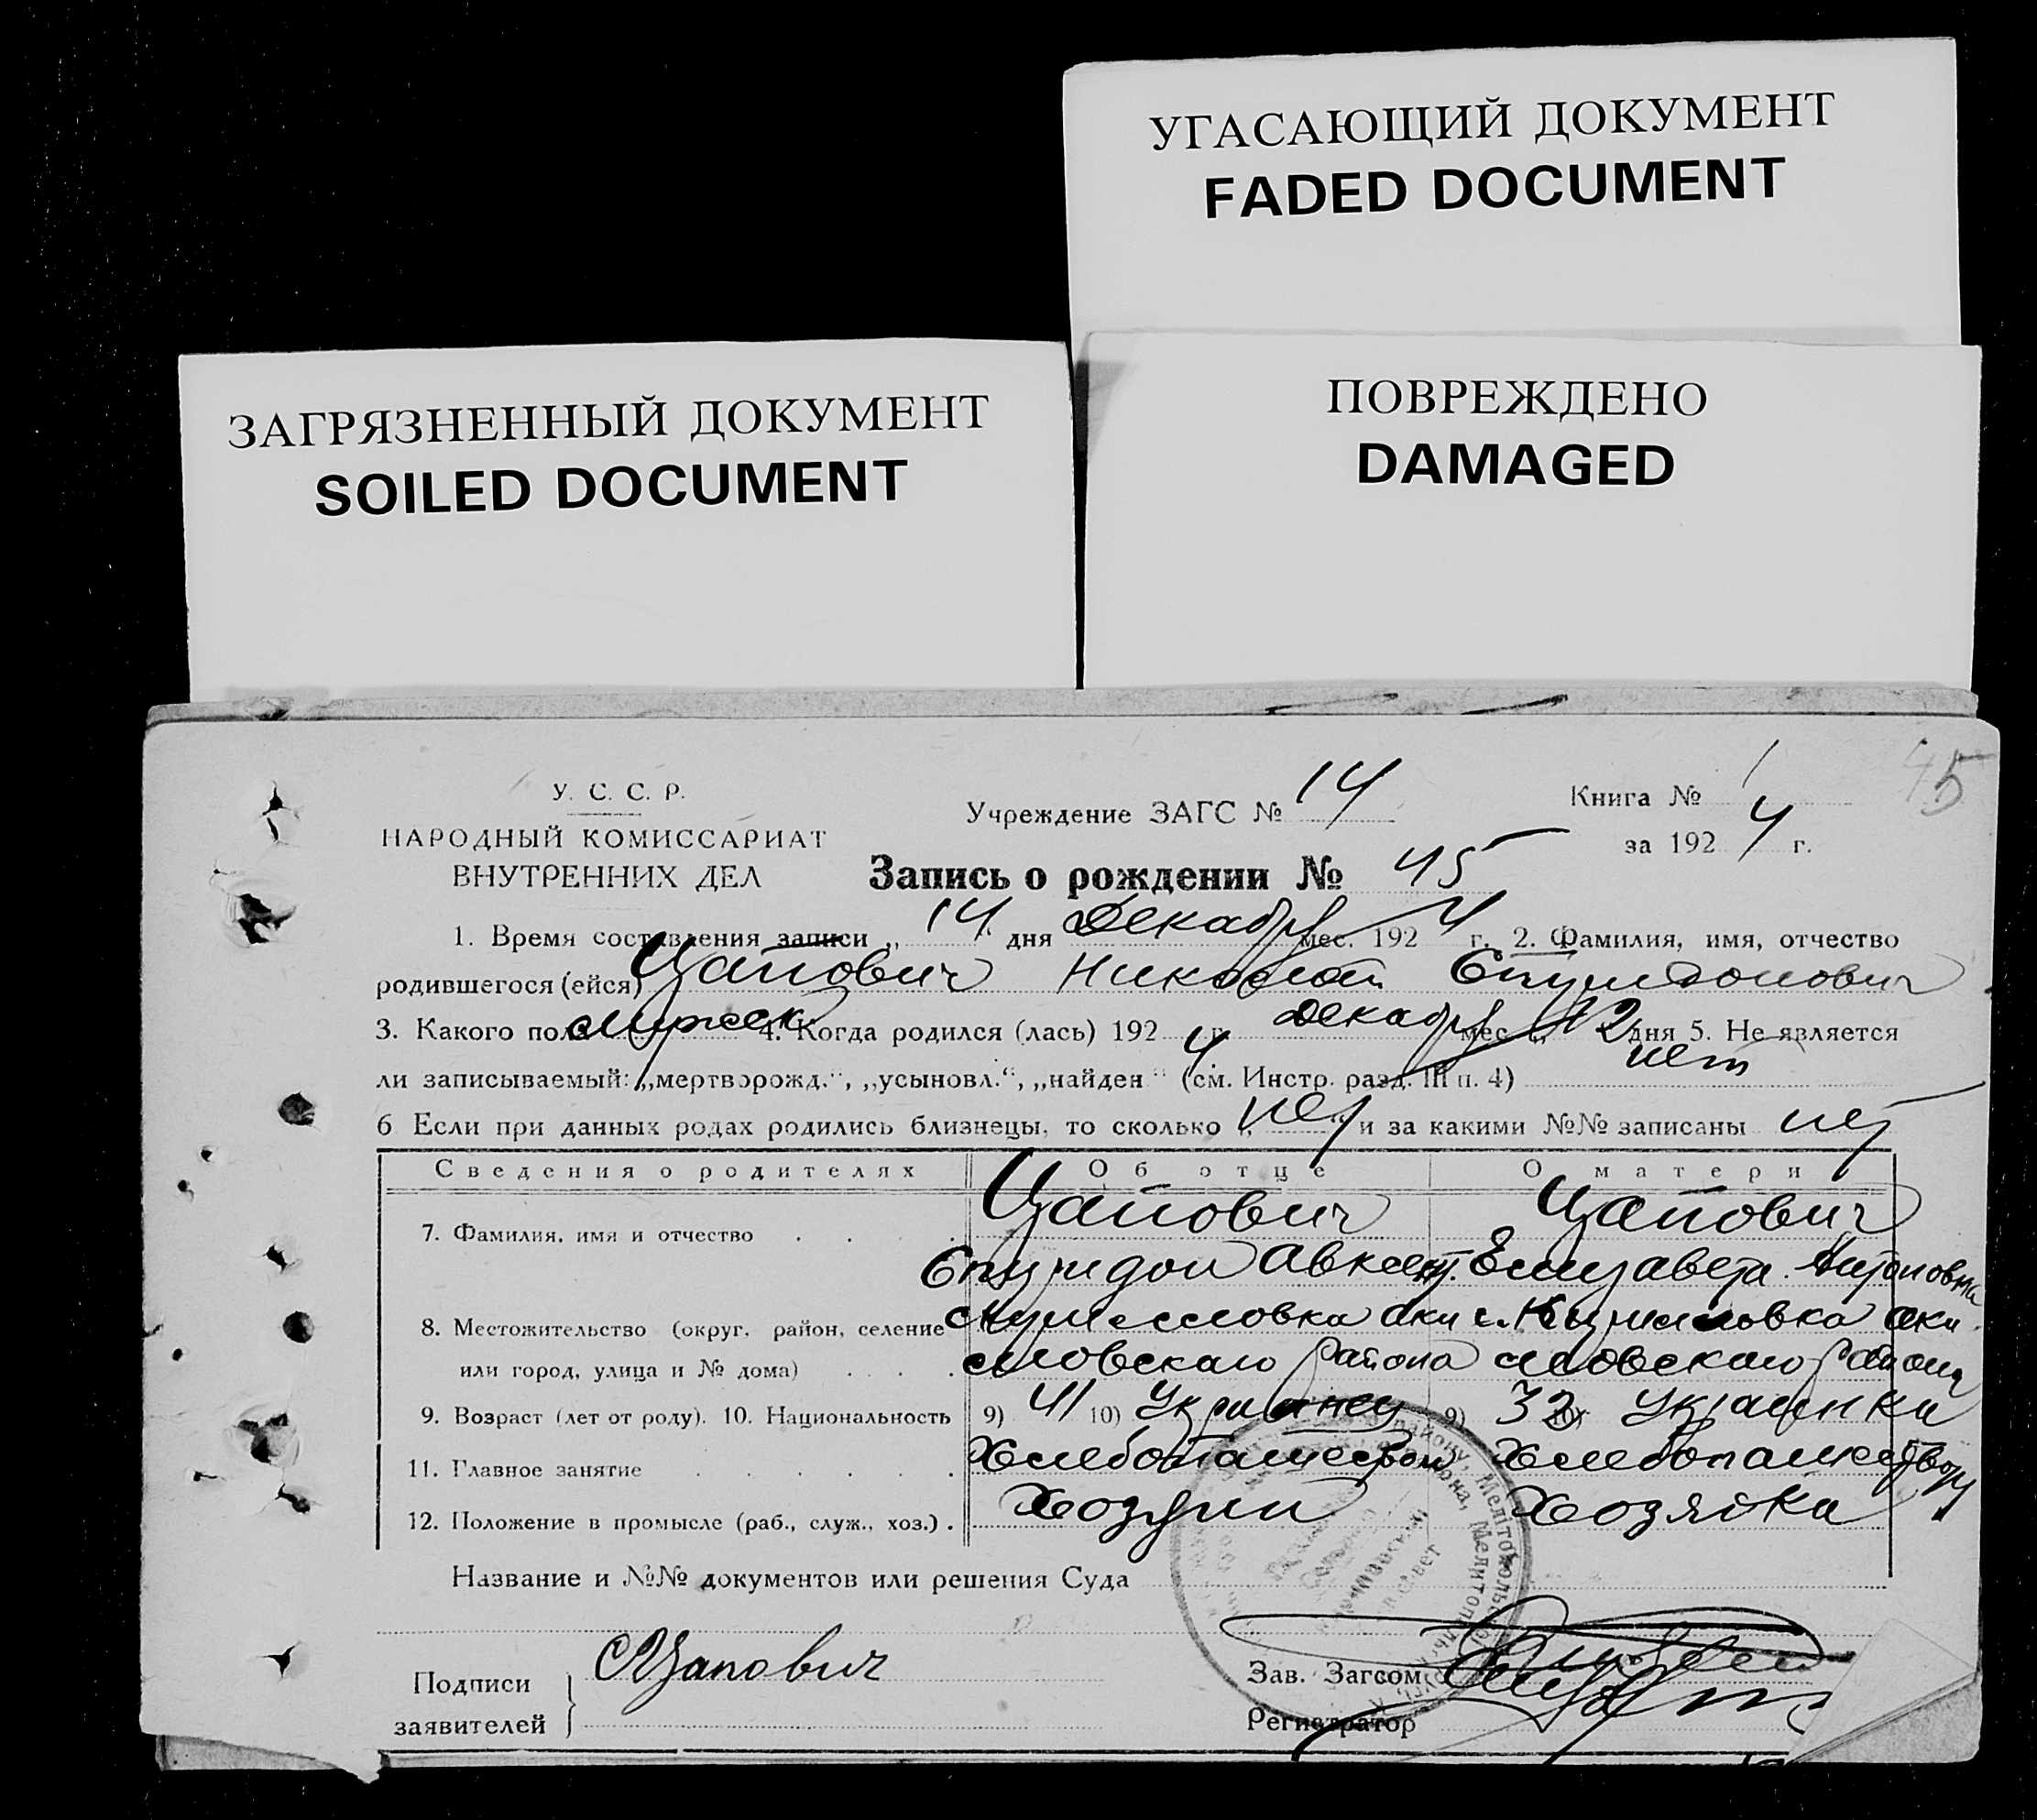 УГАСАЮЩИЙ ДОКУМЕНТ
FADED DOCUMENT
ЗАГРЯЗНЕННЫЙ ДОКУМЕНТ
SOILED DOCUMENT
ПОВРЕЖДЕНО
DAMAGED
45
У. С. С. Р.
НАРОДНЫЙ КОМИССАРИАТ
ВНУТРЕННИХ ДЕЛ
Учреждение ЗАГС № 14
Книга № 1
за 192 4 г.
Запись о рождении № 45
1. Время составления записи „ 14 дня Декабр мес. 192 4 г. 2. Фамилия, имя, отчество
родившегося (ейся) Цапович Николай
3. Какого пола мужск 4. Когда родился (лась) 192 4 г. декабр мес. „ 12 дня 5. Не является
ли записываемый: „мертворожд.“, „усыновл.“, „найден“ (см. Инстр. разд. III п. 4) нет
6 Если при данных родах родились близнецы, то сколько „ нет и за какими №№ записаны нет
Сведения о родителях Об отце О матери
7. Фамилия, имя и отчество Цапович Цапович
Елизавета Антоновна
8. Местожительство (округ, район, селение
или город, улица и № дома) района района
9. Возраст (лет от роду). 10. Национальность 9) 41 10) 9) 32 Украинка
11. Главное занятие
12. Положение в промысле (раб., служ., хоз.) Хозяин Хозяйка
Название и №№ документов или решения Суда
Подписи
заявителей
Цапович
Зав. Загсом
Регистратор